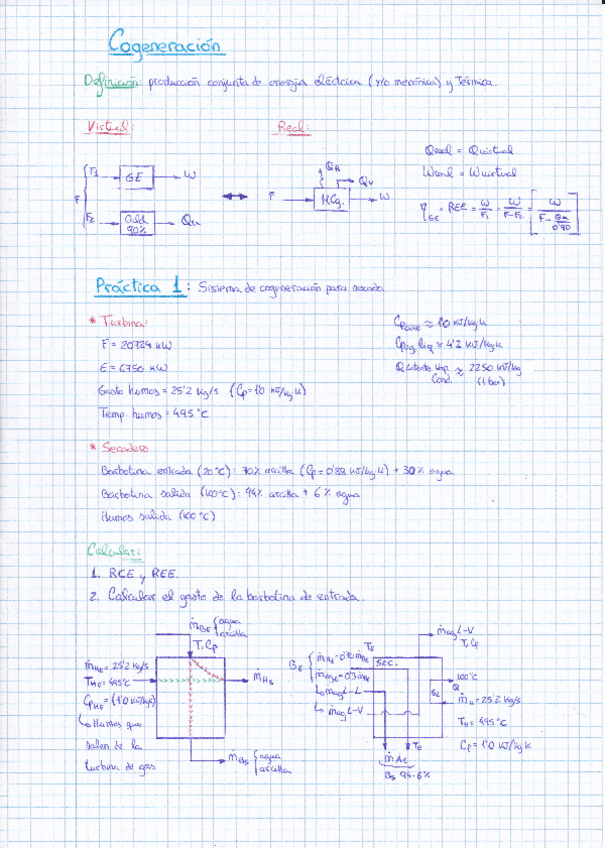 Cogeneración
Definición: producción conjunta de energía eléctrica (y/o mecánica) y térmica.
Virtual:
Real:
Qreal = Qvirtual
Wreal = Wvirtual
F
F1
GE
W
F2
Cald
90%
Qu
F
MCg.
QR
Qv
W
η GE = REE = W/F1 = W/F-F2 = [W / F - Qu/0'90]
Práctica 1: Sistema de cogeneración para secado
* Turbina:
F = 20724 kW
E = 6750 kW
Gasto humos = 25'2 kg/s (Cp = 1'0 kJ/kg K)
Temp. humos = 495°C
Cp aire ≈ 1'0 kJ/kg K
Cp ag. liq ≈ 4'2 kJ/kg K
Q latente vap. cond. ≈ 2250 kJ/kg
(1 bar)
* Secadero
Barbotina entrada (20°C): 70% arcilla (Cp = 0'88 kJ/kg K) + 30% agua
Barbotina salida (100°C): 94% arcilla + 6% agua
Humos salida (100°C)
Calcular:
1. RCE y REE.
2. Calcular el gasto de la barbotina de entrada.
ṁBE { agua
arcilla
T, Cp
ṁHE = 25'2 kg/s
THE = 495°C
CpHE = (1'0 kJ/kg K)
↳ Humos que
salen de la
turbina de gas
ṁHS
ṁBS { agua
arcilla
BE
TE
SEC.
↳ ṁag L-L
↳ ṁag L-V
ṁag L-V
T, Cp
100°C
Q
ṁH = 25'2 kg/s
TH = 495°C
Cp = 1'0 kJ/kg K
ṁAc
BS 94-6%